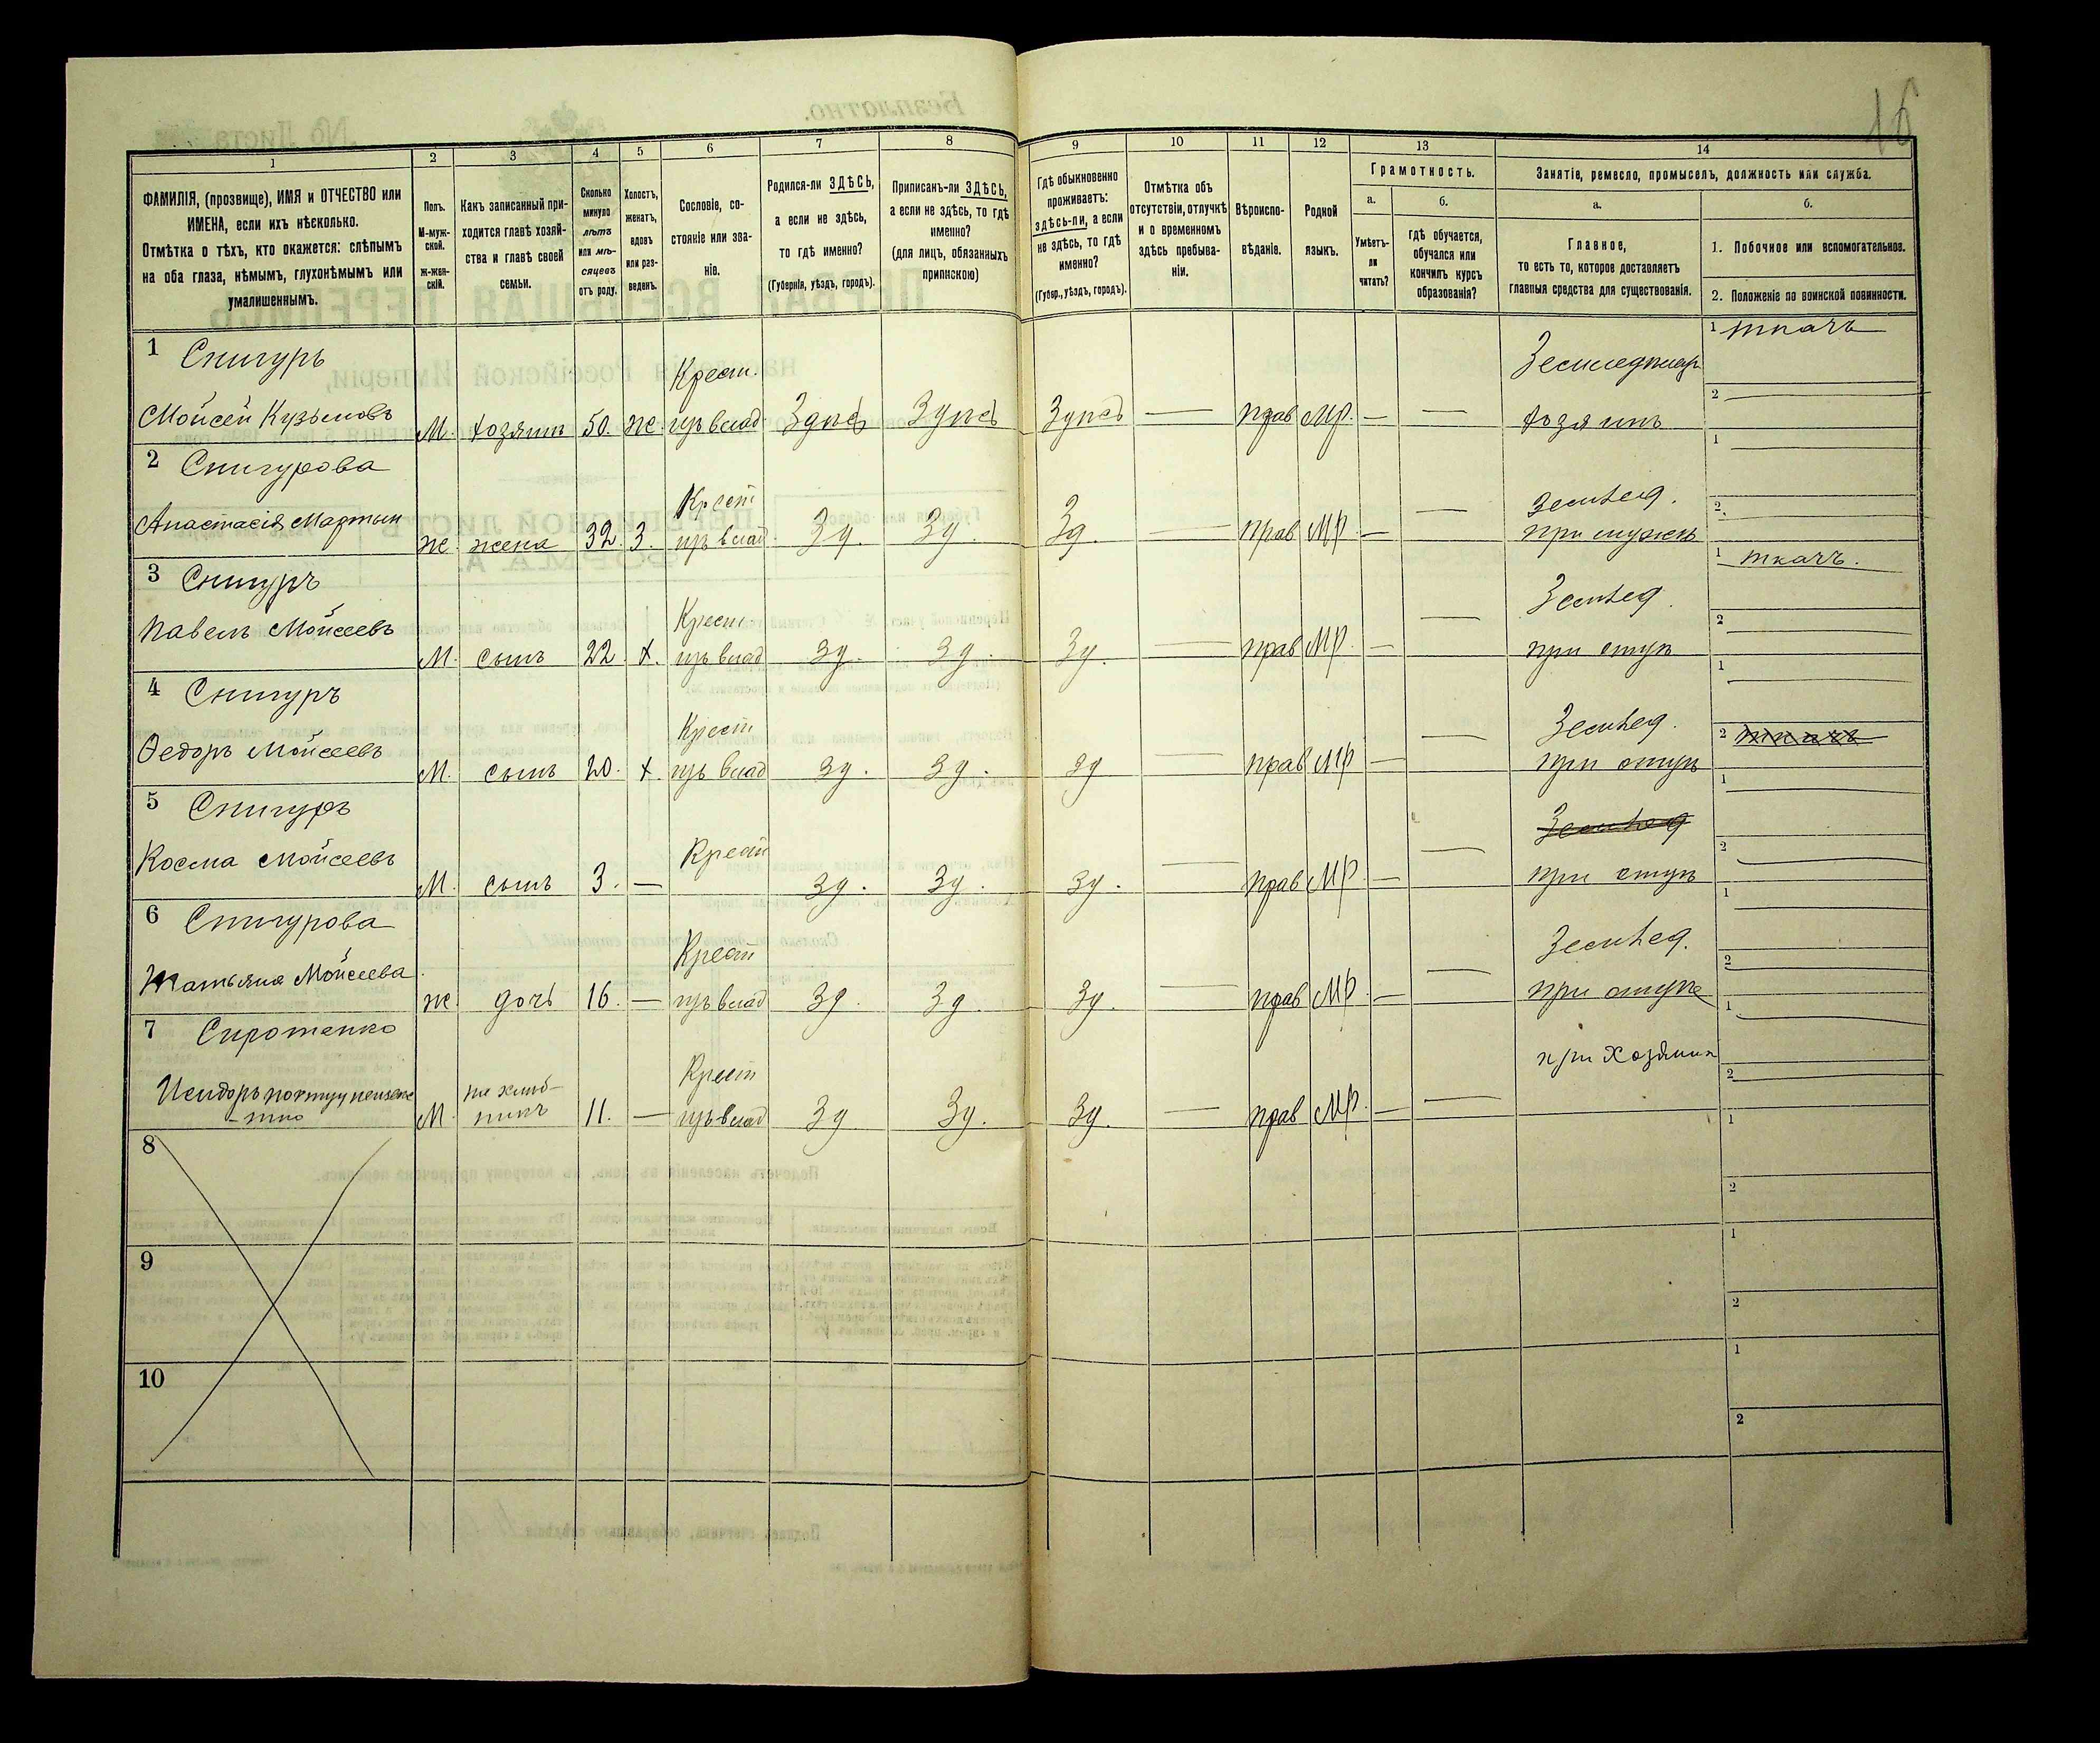 16
1 2 3 4 5 6 7 8 9 10 11 12 13 14
ФАМИЛІЯ, (прозвище), ИМЯ и ОТЧЕСТВО или
ИМЕНА, если ихъ нѣсколько.
Отмѣтка о тѣхъ, кто окажется: слѣпымъ
на оба глаза, нѣмымъ, глухонѣмымъ или
умалишеннымъ.
Полъ.
М-муж-
ской.
ж-жен-
скій.
Какъ записанный при-
ходится главѣ хозяй-
ства и главѣ своей
семьи.
Сколько
минуло
лѣтъ
или мѣ-
сяцевъ
отъ роду.
Холостъ,
женатъ,
вдовъ
или раз-
веденъ.
Сословіе, со-
стояніе или зва-
ніе.
Родился-ли ЗДѢСЬ,
а если не здѣсь,
то гдѣ именно?
(Губернія, уѣздъ, городъ).
Приписанъ-ли ЗДѢСЬ,
а если не здѣсь, то гдѣ
именно?
(для лицъ, обязанныхъ
припискою)
Гдѣ обыкновенно
проживаетъ:
здѣсь-ли, а если
не здѣсь, то гдѣ
именно?
(Губер., уѣздъ, городъ).
Отмѣтка объ
отсутствіи, отлучкѣ
и о временномъ
здѣсь пребыва-
ніи.
Вѣроиспо-
вѣданіе.
Родной
языкъ.
Грамотность.
а.
Умѣетъ-
ли
читать?
б.
гдѣ обучается,
обучался или
кончилъ курсъ
образованія?
Занятіе, ремесло, промыселъ, должность или служба.
а.
Главное,
то есть то, которое доставляетъ
главныя средства для существованія.
б.
1. Побочное или вспомогательное.
2. Положеніе по воинской повинности.
1 Снигуръ Крест. Земледѣлецъ 1 ткачъ
Мойсей Кузьмовъ М. хозяинъ 50. же. изъ влад. Здѣсь Здѣсь Здѣсь — прав МР. — — хозяинъ 2
2 Снигурова Крест Землед. 1
Анастасія Мартын же. жена 32. З. изъ влад Зд. Зд. Зд. — прав МР. — — при мужѣ 2
3 Снигуръ Крест Землед. 1 ткачъ.
Павелъ Мойсеевъ М. сынъ 22. х. изъ влад Зд. Зд. Зд. — прав МР. — — при отцѣ 2
4 Снигуръ Крест Землед. 1
Ѳедоръ Мойсеевъ М. сынъ 20. х. изъ влад зд. зд. зд — прав МР — — при отцѣ 2 ткачъ
5 Снигуръ Крест Землед 1
Косма Мойсеевъ М. сынъ 3. — зд. зд. зд. — прав МР. — — при отцѣ 2
6 Снигурова Крест Землед. 1
Татьяна Мойсеева же. дочь 16. — изъ влад Зд. Зд. Зд. — прав МР. — — при отцѣ 2
7 Сиротенко Крест при хозяинѣ 1
Исидоръ М. 11. — изъ влад Зд. Зд. Зд. — прав МР. — — 2
8 1
2
9 1
2
10 1
2